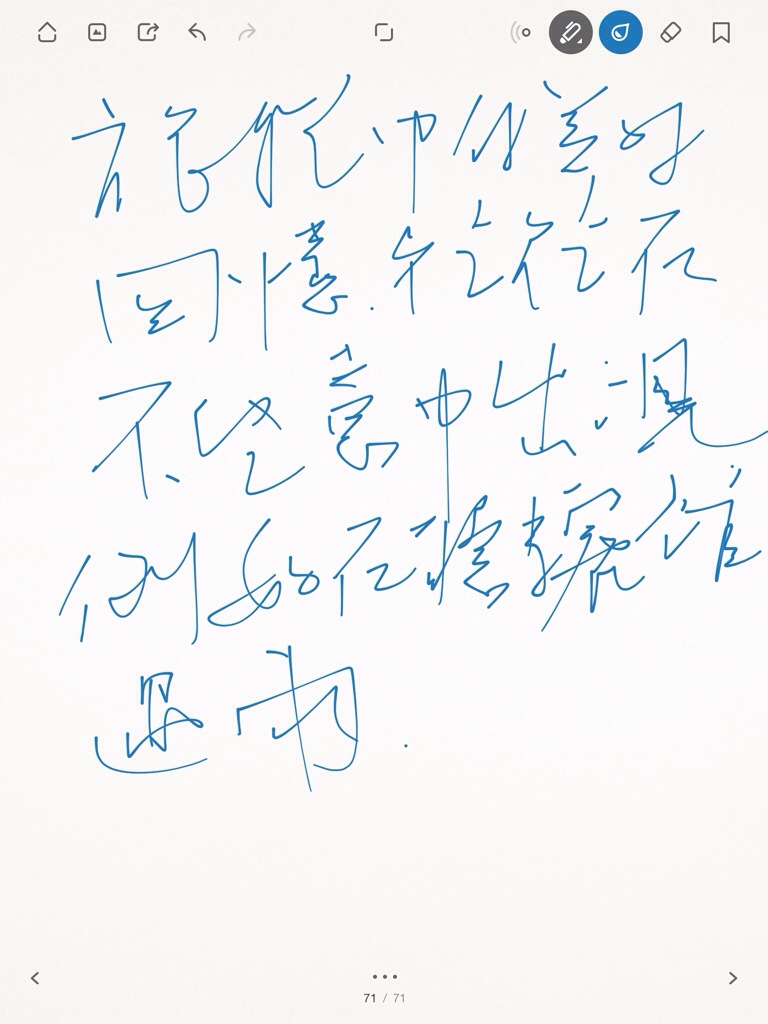 旅程中的美好
回憶.往往在
不經意中出現
例如在
遇雨.
71 / 71